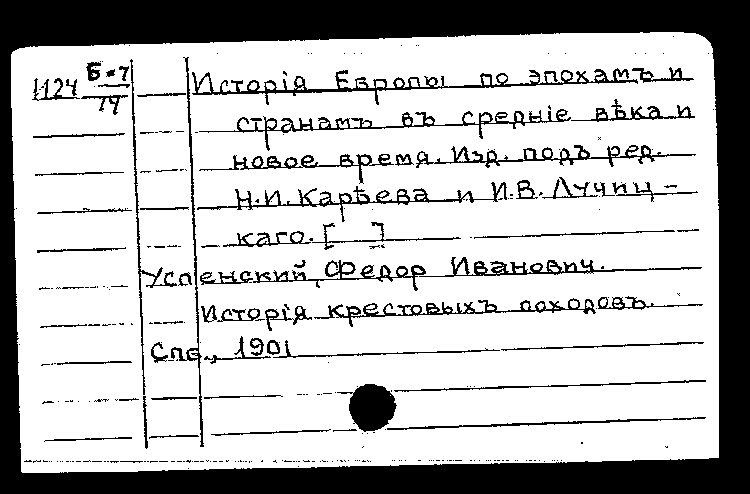 И124 Б-7/14
Исторія Европы по эпохамъ и
странамъ въ средніе вѣка и
новое время. Изд. подъ ред.
Н.И. Карѣева и И.В. Лучиц-
каго. [ ]
Успенский, Федор Иванович.
Исторія крестовыхъ походовъ.
Спб., 1901